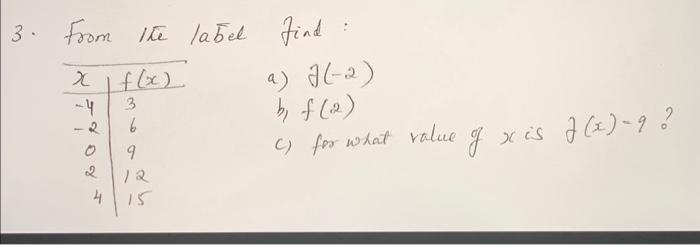 3. From the label find :
x f(x)
-4 3
-2 6
0 9
2 12
4 15
a) f(-2)
b) f(2)
c) for what value of x is f(x)=9 ?